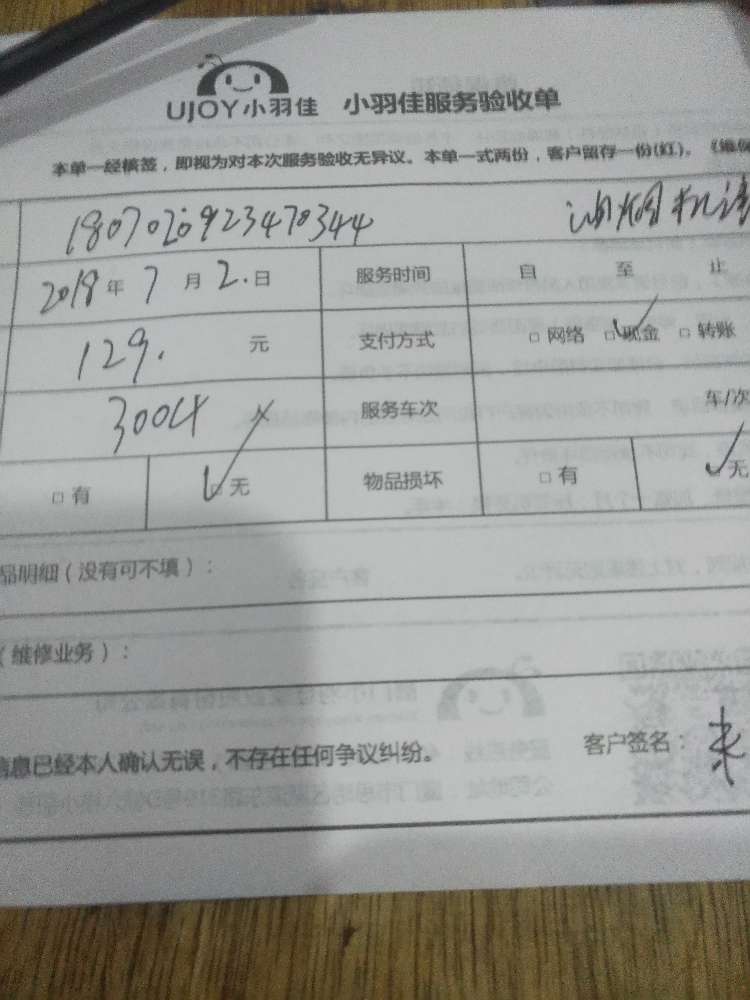 UJOY小羽佳 小羽佳服务验收单
本单一经核签，即视为对本次服务验收无异议。本单一式两份，客户留存一份(红)。
1807020923470344 油烟机清
2018年7月2.日 服务时间 自 至 止
129. 元 支付方式 □网络 □现金 □转账
3004 人 服务车次 车/次
□有 □无 物品损坏 □有 □无
品明细（没有可不填）：
（维修业务）：
信息已经本人确认无误，不存在任何争议纠纷。 客户签名：